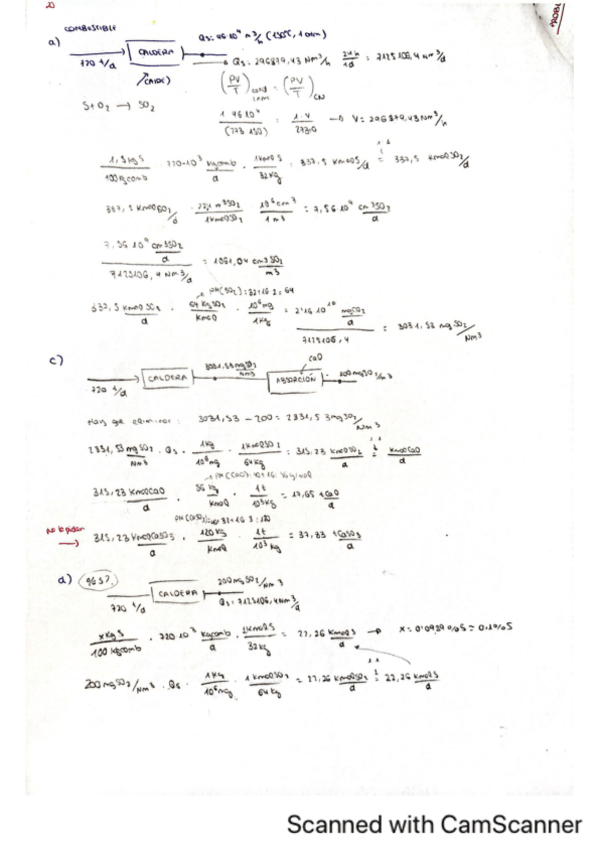 COMBUSTIBLE
a) 720 t/d CALDERA Qs = 46·10⁴ m³/h (150ºC, 1 atm)
Qs = 296879,43 Nm³/h · 24h/1d = 7125106,4 Nm³/d
S + O₂ → SO₂
(PV/T)cond = (PV/T)CN
1·46·10⁴/(273+150) = 1·V/273 → V = 296879,43 Nm³/h
1,5 kg S/100 kg comb · 720·10³ kg comb/d · 1 kmol S/32 kg = 337,5 kmol S/d = 337,5 kmol SO₂/d
337,5 kmol SO₂/d · m³ SO₂/1 kmol SO₂ · 10⁶ cm³/1 m³ = 7,56·10⁹ cm³ SO₂/d
7,56·10⁹ cm³ SO₂/d / 7125106,4 Nm³/d = 1061,04 cm³ SO₂/m³
PM(SO₂) = 32+16·2 = 64
337,5 kmol SO₂/d · 64 kg SO₂/kmol · 10⁶ mg/1 kg = 2'16·10¹⁰ mg SO₂/d / 7125106,4 = 3031,53 mg SO₂/Nm³
c) 720 t/d CALDERA 3031,53 mg SO₂/Nm³ CaO ABSORCIÓN 200 mg SO₂/Nm³
Hay que eliminar: 3031,53 - 200 = 2831,53 mg SO₂/Nm³
2831,53 mg SO₂/Nm³ · Qs · 1 kg/10⁶ mg · 1 kmol SO₂/64 kg = 315,23 kmol SO₂/d = kmol CaO/d
315,23 kmol CaO/d · 56 kg/kmol · 1 t/10³ kg = 17,65 t CaO/d
no lo piden → 315,23 kmol CaSO₃/d · 120 kg/kmol · 1 t/10³ kg = 37,83 t CaSO₃/d
d) ¿% S?
720 t/d CALDERA 200 mg SO₂/Nm³
Qs = 7125106,4 Nm³/d
x kg S/100 kg comb · 720·10³ kg comb/d · 1 kmol S/32 kg = 22,26 kmol S/d → x = 0'0989 % S ≈ 0'1 % S
200 mg SO₂/Nm³ · Qs · 1 kg/10⁶ mg · 1 kmol SO₂/64 kg = 22,26 kmol SO₂/d = 22,26 kmol S/d
Scanned with CamScanner